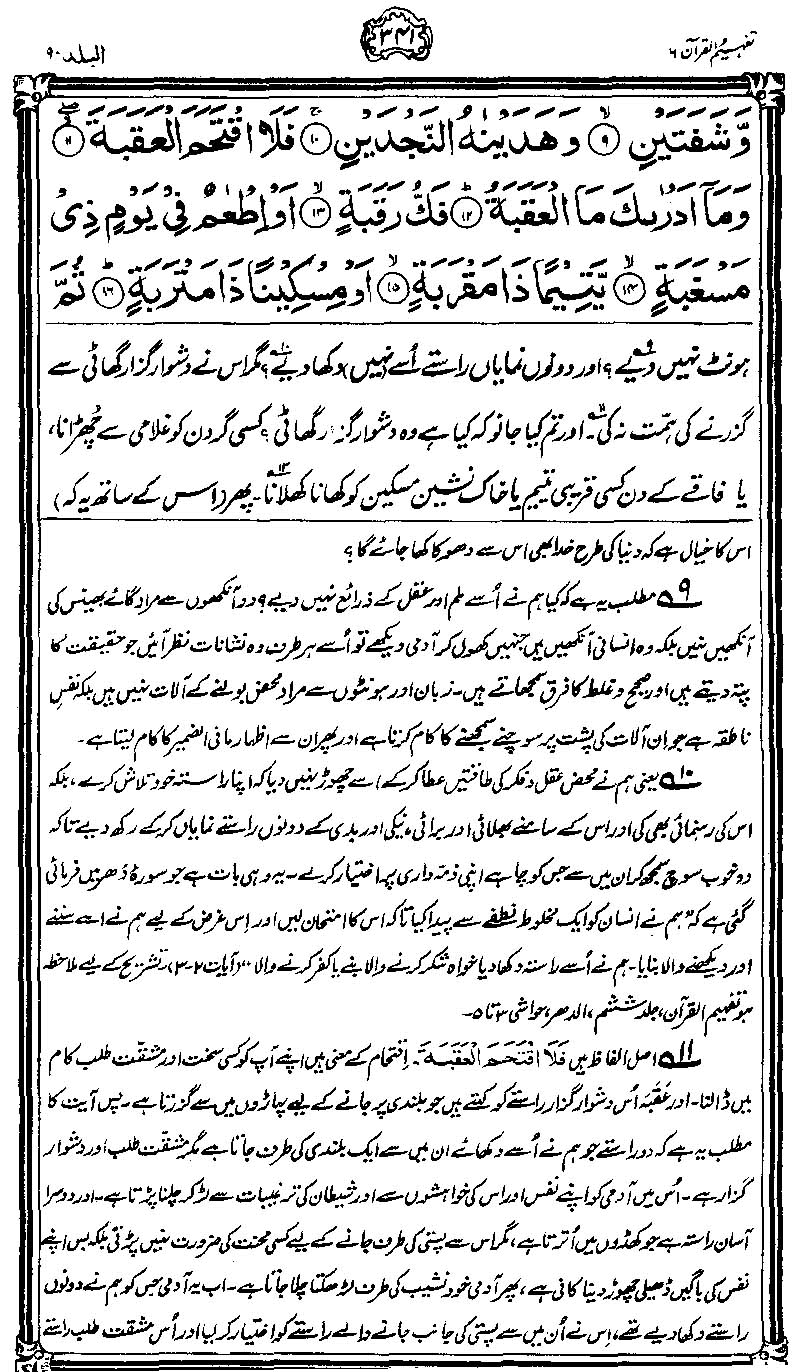 تفہیم القرآن ۶
۳۴۱
البلد ۹۰
وَّشَفَتَيْنِ ۙ﴿۹﴾ وَهَدَيْنٰهُ النَّجْدَيْنِ ۚ﴿۱۰﴾ فَلَا اقْتَحَمَ الْعَقَبَةَ ۖ﴿۱۱﴾
وَمَاۤ اَدْرٰىكَ مَا الْعَقَبَةُ ؕ﴿۱۲﴾ فَكُّ رَقَبَةٍ ۙ﴿۱۳﴾ اَوْ اِطْعٰمٌ فِيْ يَوْمٍ ذِيْ
مَسْغَبَةٍ ۙ﴿۱۴﴾ يَّتِيْمًا ذَا مَقْرَبَةٍ ۙ﴿۱۵﴾ اَوْ مِسْكِيْنًا ذَا مَتْرَبَةٍ ؕ﴿۱۶﴾ ثُمَّ
ہونٹ نہیں دیے؟۹ اور دونوں نمایاں راستے اُسے (نہیں) دکھا دیے؟۱۰ مگر اس نے دشوار گزار گھاٹی سے
گزرنے کی ہمّت نہ کی۔۱۱ اور تم کیا جانو کہ کیا ہے وہ دشوار گزار گھاٹی؟ کسی گردن کو غلامی سے چھڑانا،
یا فاقے کے دن کسی قریبی یتیم یا خاک نشین مسکین کو کھانا کھلانا۱۲۔ پھر (اس کے ساتھ یہ کہ)
اس کا خیال ہے کہ دنیا کی طرح خدا بھی اس سے دھوکا کھا جائے گا؟
۹ مطلب یہ ہے کہ کیا ہم نے اُسے علم اور عقل کے ذرائع نہیں دیے؟ دو آنکھوں سے مراد گائے بھینس کی
آنکھیں نہیں بلکہ وہ انسانی آنکھیں ہیں جنہیں کھول کر آدمی دیکھے تو اُسے ہر طرف وہ نشانات نظر آئیں جو حقیقت کا
پتہ دیتے ہیں اور صحیح و غلط کا فرق سمجھاتے ہیں۔ زبان اور ہونٹوں سے مراد محض بولنے کے آلات نہیں ہیں بلکہ نفسِ
ناطقہ ہے جو ان آلات کی پشت پر سوچنے سمجھنے کا کام کرتا ہے اور پھر ان سے اظہار مافی الضمیر کا کام لیتا ہے۔
۱۰ یعنی ہم نے محض عقل و فکر کی طاقتیں عطا کر کے اسے چھوڑ نہیں دیا کہ اپنا راستہ خود تلاش کرے، بلکہ
اس کی رہنمائی بھی کی اور اس کے سامنے بھلائی اور برائی، نیکی اور بدی کے دونوں راستے نمایاں کر کے رکھ دیے تاکہ
وہ خوب سوچ سمجھ کر ان میں سے جس کو چاہے اپنی ذمّہ داری پر اختیار کر لے۔ یہ وہی بات ہے جو سورۂ دَھر میں فرمائی
گئی ہے کہ "ہم نے انسان کو ایک مخلوط نطفے سے پیدا کیا تاکہ اس کا امتحان لیں اور اِس غرض کے لیے ہم نے اسے سننے
اور دیکھنے والا بنایا۔ ہم نے اُسے راستہ دکھا دیا خواہ شکر کرنے والا بنے یا کفر کرنے والا" (آیات ۲-۳) تشریح کے لیے ملاحظہ
ہو تفہیم القرآن، جلد ششم، الدھر، حواشی ۳ تا ۵۔
۱۱ اصل الفاظ ہیں فَلَا اقْتَحَمَ الْعَقَبَةَ۔ اِقتحام کے معنی ہیں اپنے آپ کو کسی سخت اور مشقّت طلب کام
میں ڈالنا۔ اور عَقَبَہ اُس دشوار گزار راستے کو کہتے ہیں جو بلندی پر جانے کے لیے پہاڑوں میں سے گزرتا ہے۔ پس آیت کا
مطلب یہ ہے کہ دو راستے جو ہم نے اُسے دکھائے ان میں سے ایک بلندی کی طرف جاتا ہے مگر مشقّت طلب اور دشوار
گزار ہے۔ اُس میں آدمی کو اپنے نفس اور اس کی خواہشوں سے اور شیطان کی ترغیبات سے لڑ کر چلنا پڑتا ہے۔ اور دوسرا
آسان راستہ ہے جو کھڈوں میں اُترتا ہے، مگر اس سے پستی کی طرف جانے کے لیے کسی محنت کی ضرورت نہیں پڑتی بلکہ بس اپنے
نفس کی باگیں ڈھیلی چھوڑ دینا کافی ہے، پھر آدمی خود نشیب کی طرف لڑھکتا چلا جاتا ہے۔ اب یہ آدمی جس کو ہم نے دونوں
راستے دکھا دیے تھے، اِس نے اُن میں سے پستی کی جانب جانے والے راستے کو اختیار کر لیا اور اُس مشقت طلب راستے